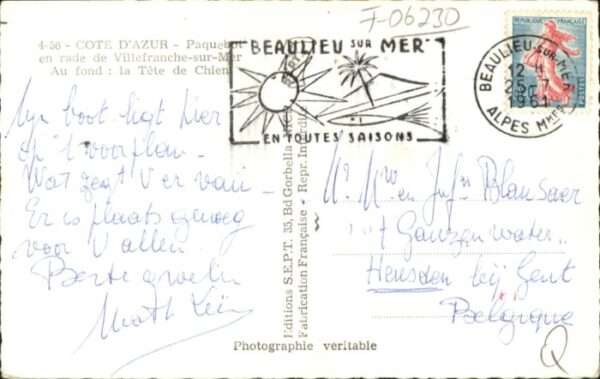 F-06230
4-56 - COTE D'AZUR - Paquebot
en rade de Villefranche-sur-Mer
Au fond : la Tête de Chien
BEAULIEU SUR MER
EN TOUTES SAISONS
BEAULIEU-SUR-MER
12 H
25-7
1961
ALPES MMES
Mijn boot ligt hier
op 't voorplan -
Wat zegt U er van -
Er is plaats genoeg
voor U allen.
Beste groeten
Editions S.E.P.T. 35, Bd Gorbella
Fabrication Française - Repr. Interdite
Mr Mw en Jufr Blansaer
't Ganzenwater
Heusden bij Gent
Belgique
Photographie véritable
Q